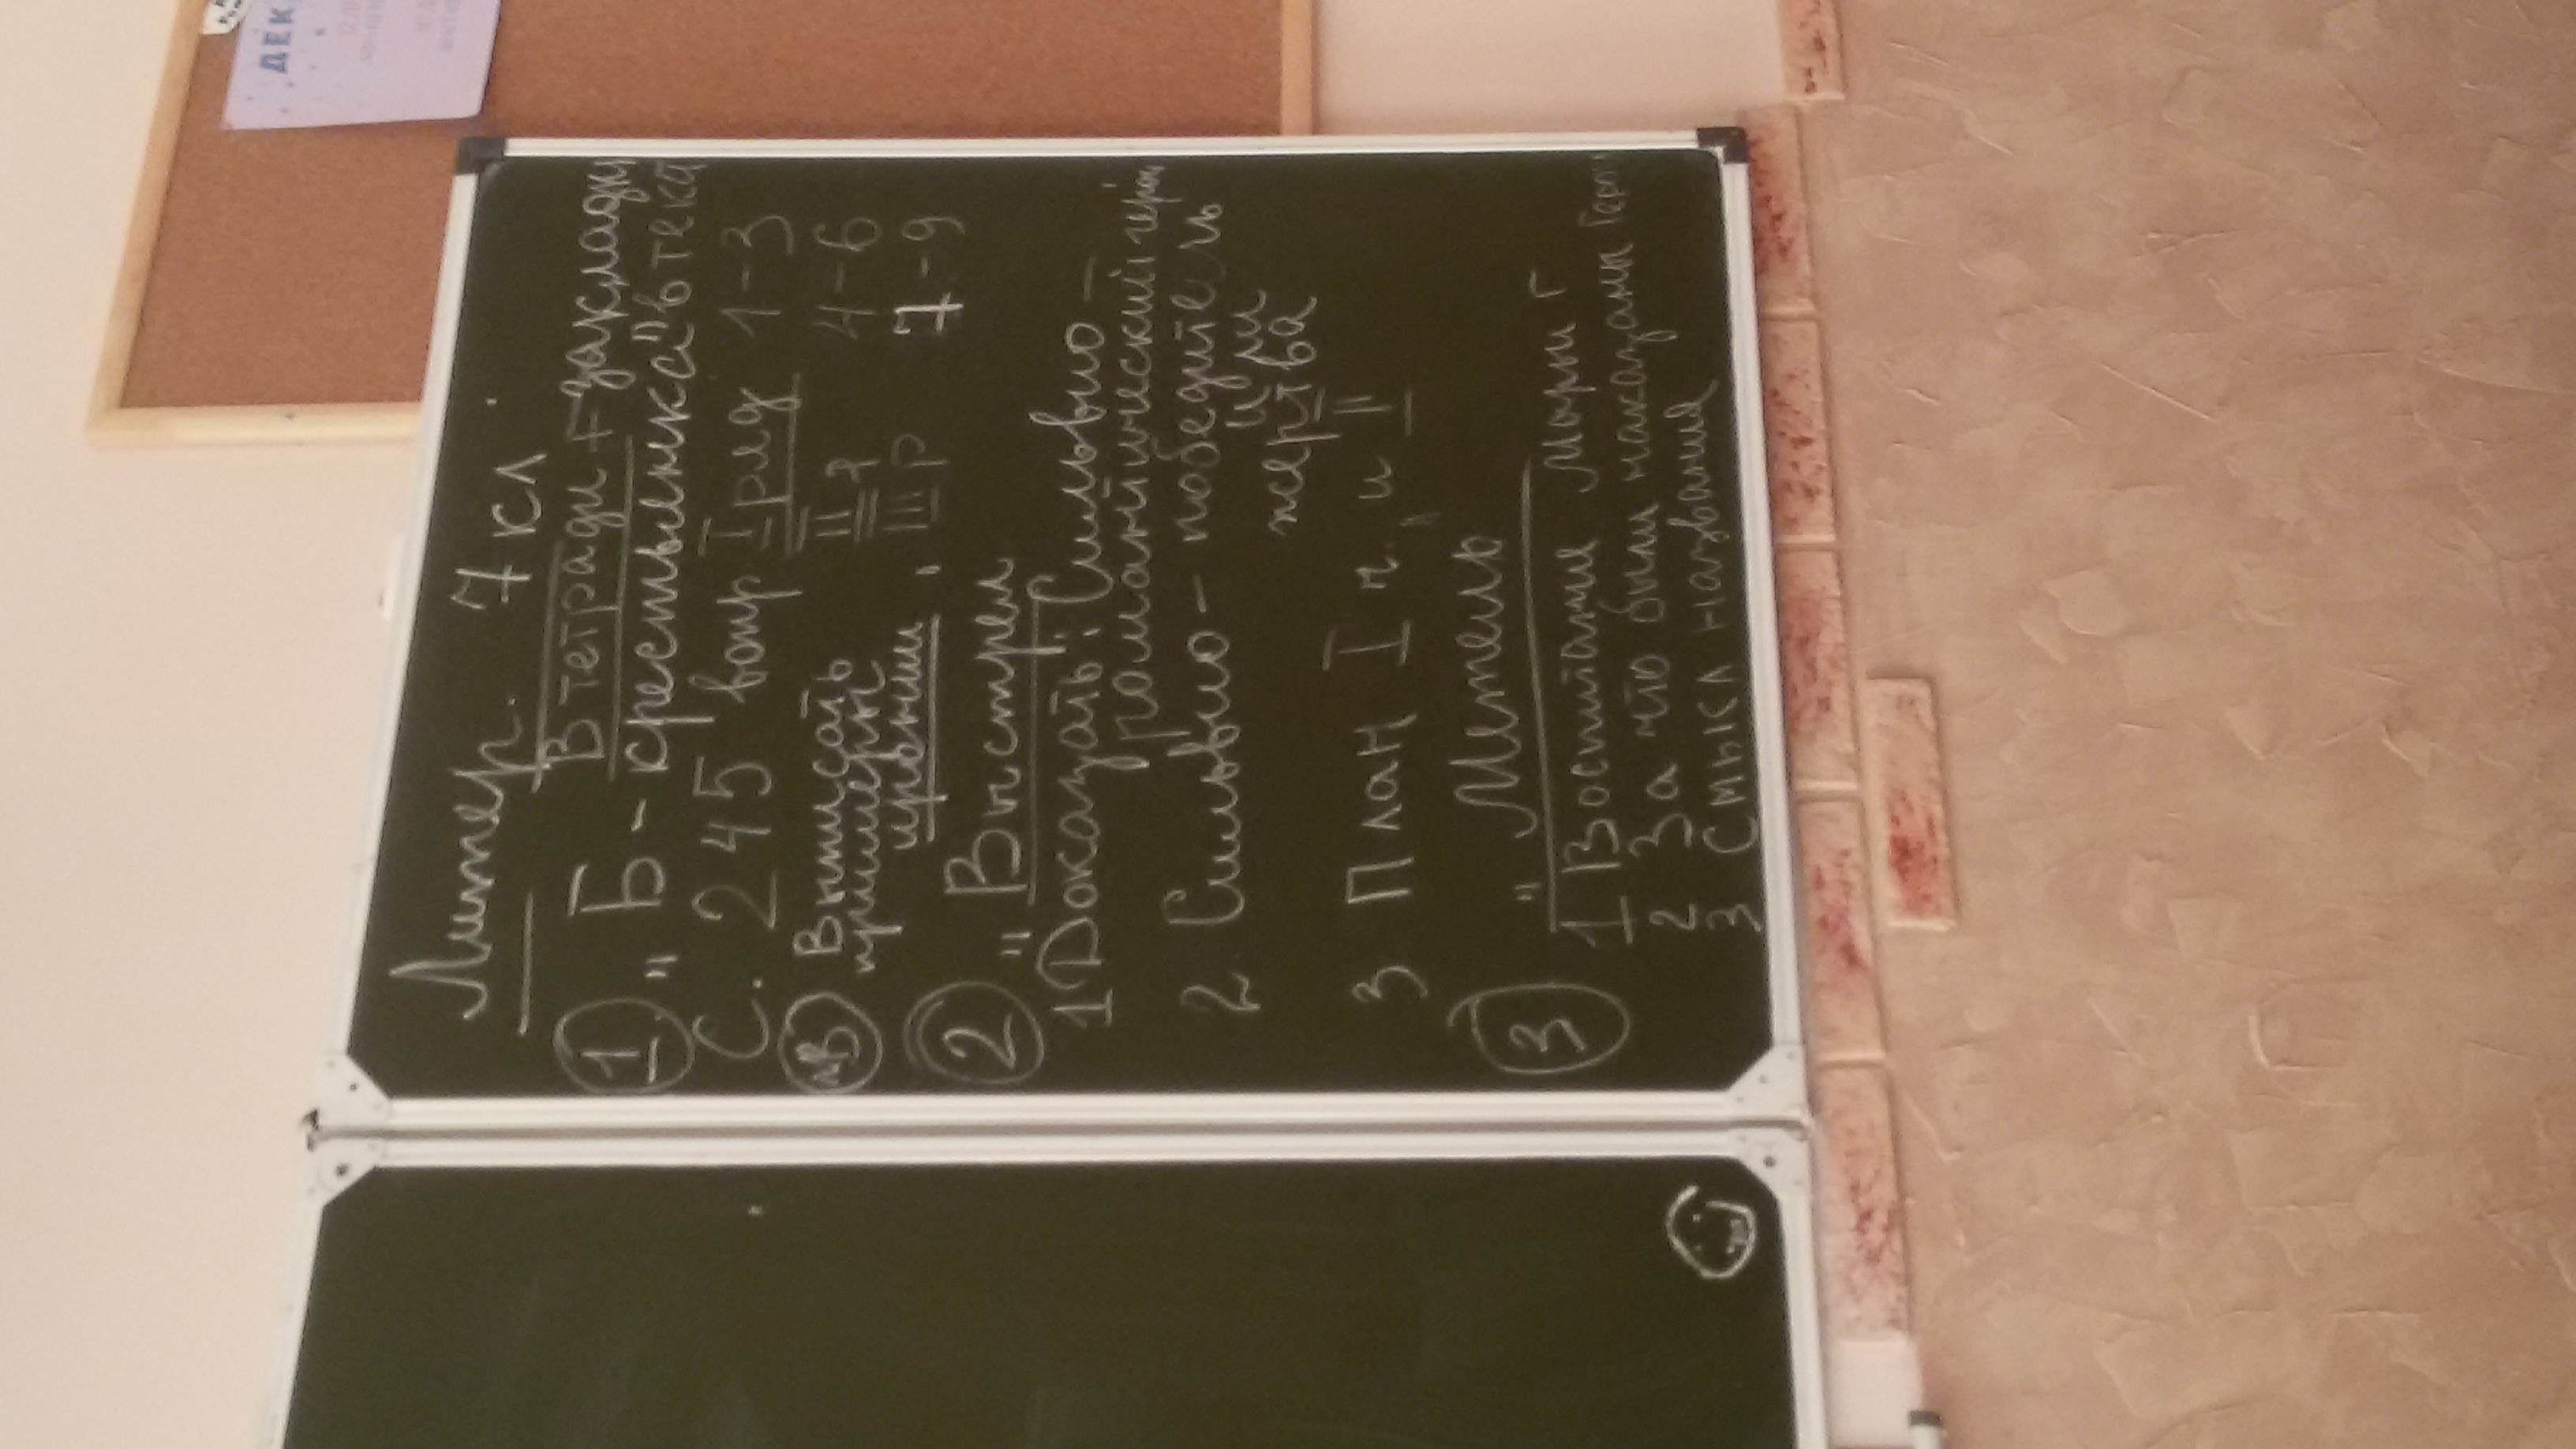 ДЕК
Литер. 7 кл.
В тетради + закладки
① " Б - крестьянка" в текст
С. 245 вопр I ряд 1-3
II р 4-6
NB Выписать III р 7-9
примеры
иронии
② " Выстрел
1 Доказать: Сильвио -
романтический герой
2 Сильвио - победитель
или
жертва
3 План I ч. и II
③ " Метель
1 Воспитание Марьи Г
2 За что были наказаны Герои
3 Смысл названия